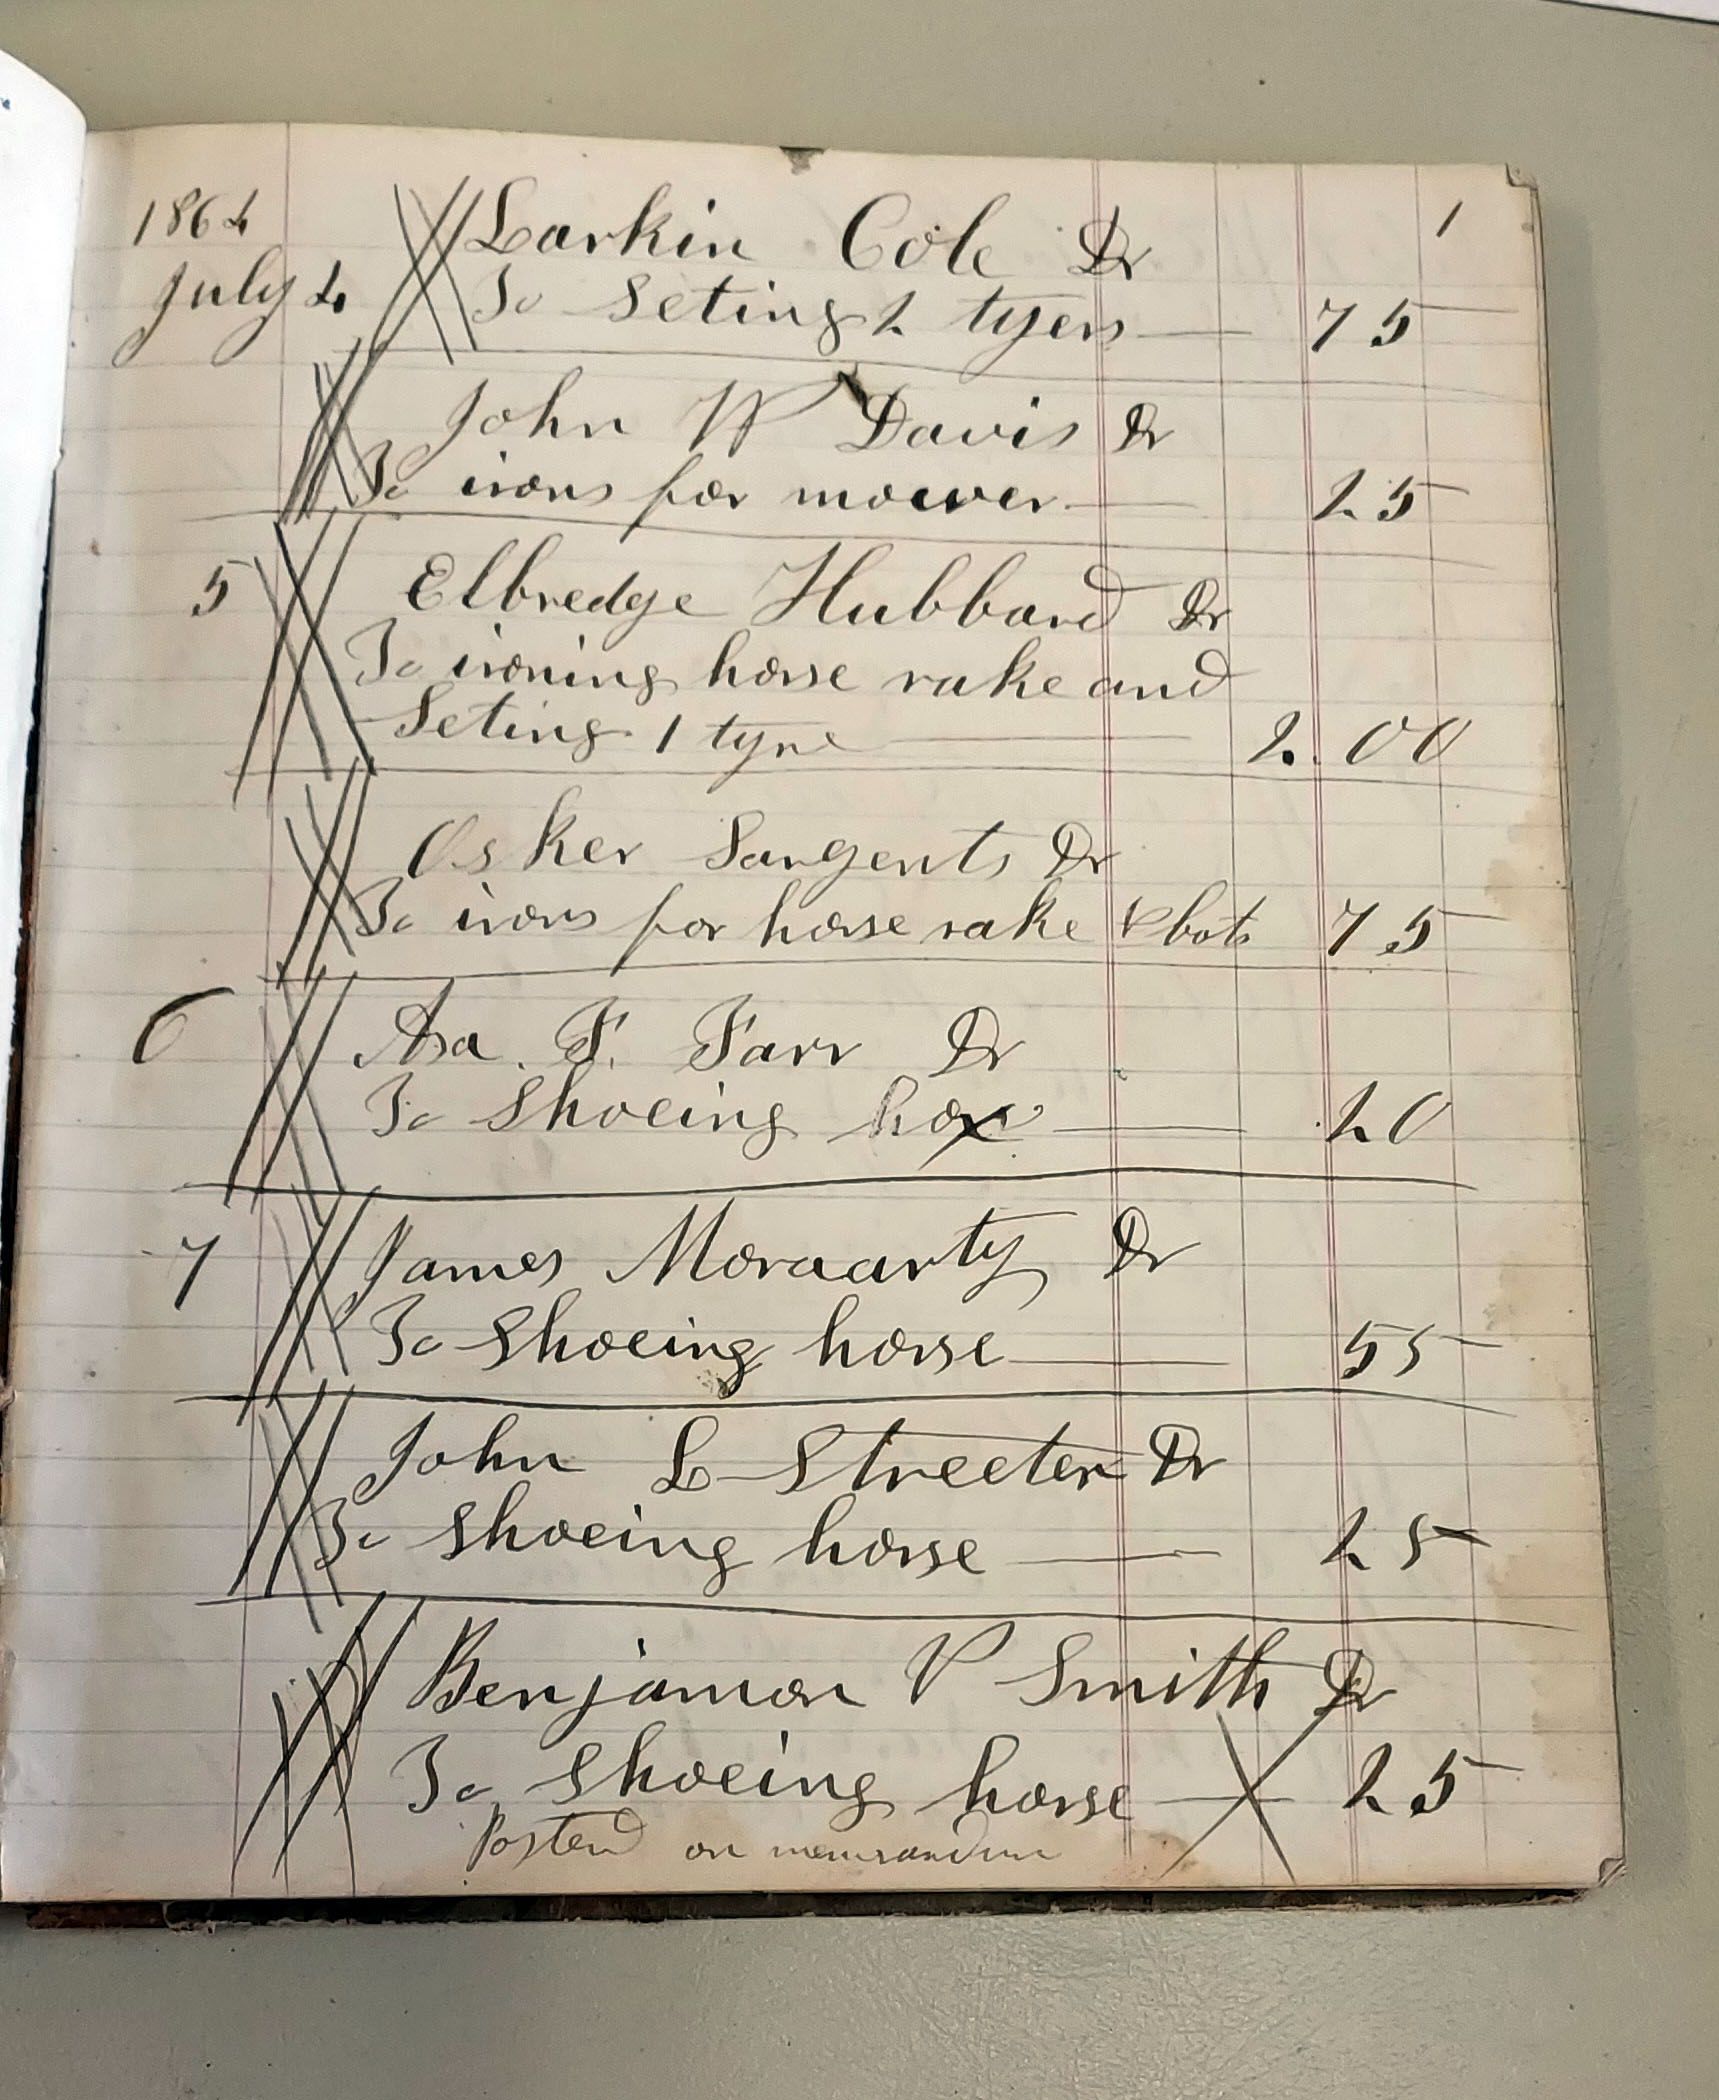 1
1864 Larkin Cole Dr
July 4 To Seting 2 tyers 75
John W Davis Dr
To irons for mower 25
5 Elbredge Hubbard Dr
To ironing horse rake and
Seting 1 tyre 2.00
Osker Sargents Dr
To irons for horse rake & bots 75
6 Asa. F. Farr Dr
To Shoeing 20
7 James Moraarty Dr
To Shoeing horse 55
John L Streeter Dr
To Shoeing horse 25
Benjamon P Smith Dr
To Shoeing horse 25
Posted on memorandum